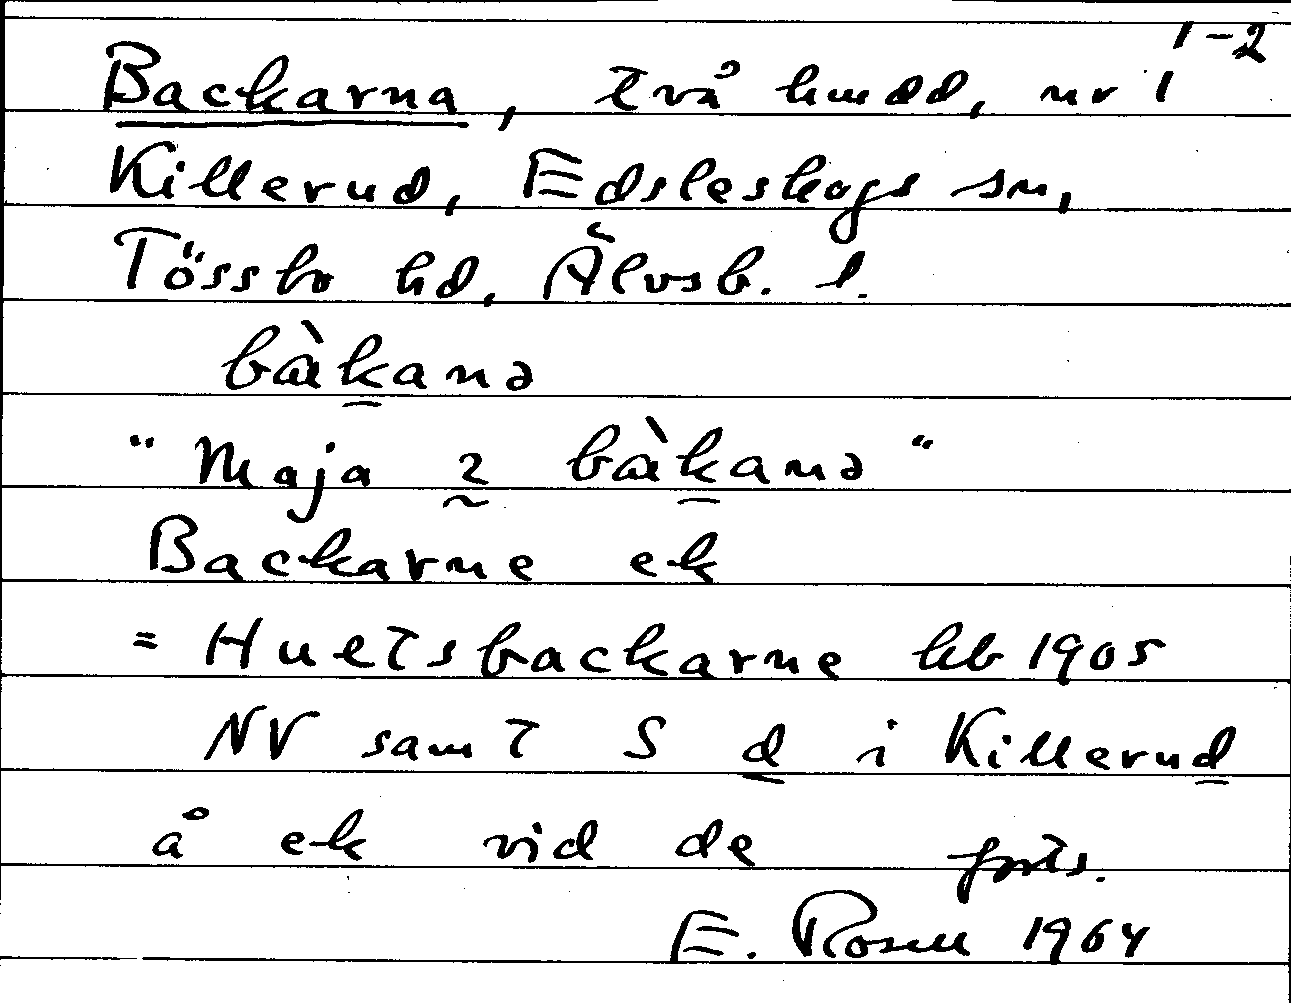 Backarna, två hmdd, nr 1 1-2
Killerud, Edsleskogs sn,
Tössbo hd, Älvsb. l.
bàkanə
"Maja 2 bàkanə"
Backarne ek
= Huetsbackarne hb 1905
NV samt S d i Killerud
å ek vid de forts.
E. Rosell 1964